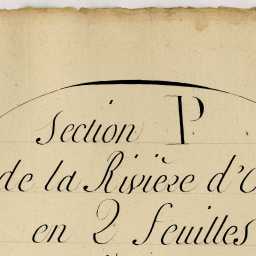 Section P
de la Rivière d'O
en 2 feuilles